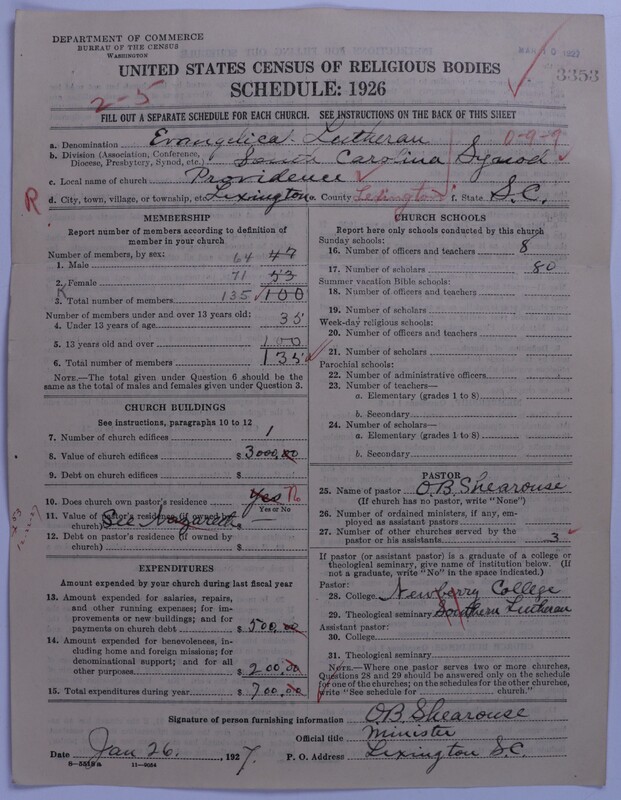 DEPARTMENT OF COMMERCE
BUREAU OF THE CENSUS
WASHINGTON
UNITED STATES CENSUS OF RELIGIOUS BODIES
SCHEDULE: 1926
3353
2-5
FILL OUT A SEPARATE SCHEDULE FOR EACH CHURCH. SEE INSTRUCTIONS ON THE BACK OF THIS SHEET
a. Denomination Evangelical Lutheran 0-9-9
b. Division (Association, Conference, Diocese, Presbytery, Synod, etc.) South Carolina Synod
c. Local name of church Providence
R d. City, town, village, or township, etc. Lexington e. County Lexington f. State S.C.
MEMBERSHIP
Report number of members according to definition of
member in your church
Number of members, by sex:
1. Male 64 47
2. Female 71 53
3. Total number of members 135 100
Number of members under and over 13 years old:
4. Under 13 years of age 35
5. 13 years old and over 100
6. Total number of members 135
NOTE.—The total given under Question 6 should be
the same as the total of males and females given under Question 3.
CHURCH BUILDINGS
See instructions, paragraphs 10 to 12
7. Number of church edifices 1
8. Value of church edifices $ 3000.00
9. Debt on church edifices $
10. Does church own pastor's residence Yes No
Yes or No
11. Value of pastor's residence (if owned by
church) See Nazareth $ —
12. Debt on pastor's residence (if owned by
church) $
EXPENDITURES
Amount expended by your church during last fiscal year
13. Amount expended for salaries, repairs,
and other running expenses; for im-
provements or new buildings; and for
payments on church debt $ 500.00
14. Amount expended for benevolences, in-
cluding home and foreign missions; for
denominational support; and for all
other purposes $ 200.00
15. Total expenditures during year $ 700.00
CHURCH SCHOOLS
Report here only schools conducted by this church
Sunday schools:
16. Number of officers and teachers 8
17. Number of scholars 80
Summer vacation Bible schools:
18. Number of officers and teachers
19. Number of scholars
Week-day religious schools:
20. Number of officers and teachers
21. Number of scholars
Parochial schools:
22. Number of administrative officers
23. Number of teachers—
a. Elementary (grades 1 to 8)
b. Secondary
24. Number of scholars—
a. Elementary (grades 1 to 8)
b. Secondary
PASTOR
25. Name of pastor O.B. Shearouse
(If church has no pastor, write "None")
26. Number of ordained ministers, if any, em-
ployed as assistant pastors
27. Number of other churches served by the
pastor or his assistants 3
If pastor (or assistant pastor) is a graduate of a college or
theological seminary, give name of institution below. (If
not a graduate, write "No" in the space indicated.)
Pastor:
28. College Newberry College
29. Theological seminary Southern Lutheran
Assistant pastor:
30. College
31. Theological seminary
NOTE.—Where one pastor serves two or more churches,
Questions 28 and 29 should be answered only on the schedule
for one of the churches; on the schedules for the other churches,
write "See schedule for church."
Signature of person furnishing information O.B. Shearouse
Official title Minister
Date Jan 26. , 1927. P. O. Address Lexington S.C.
11-9054